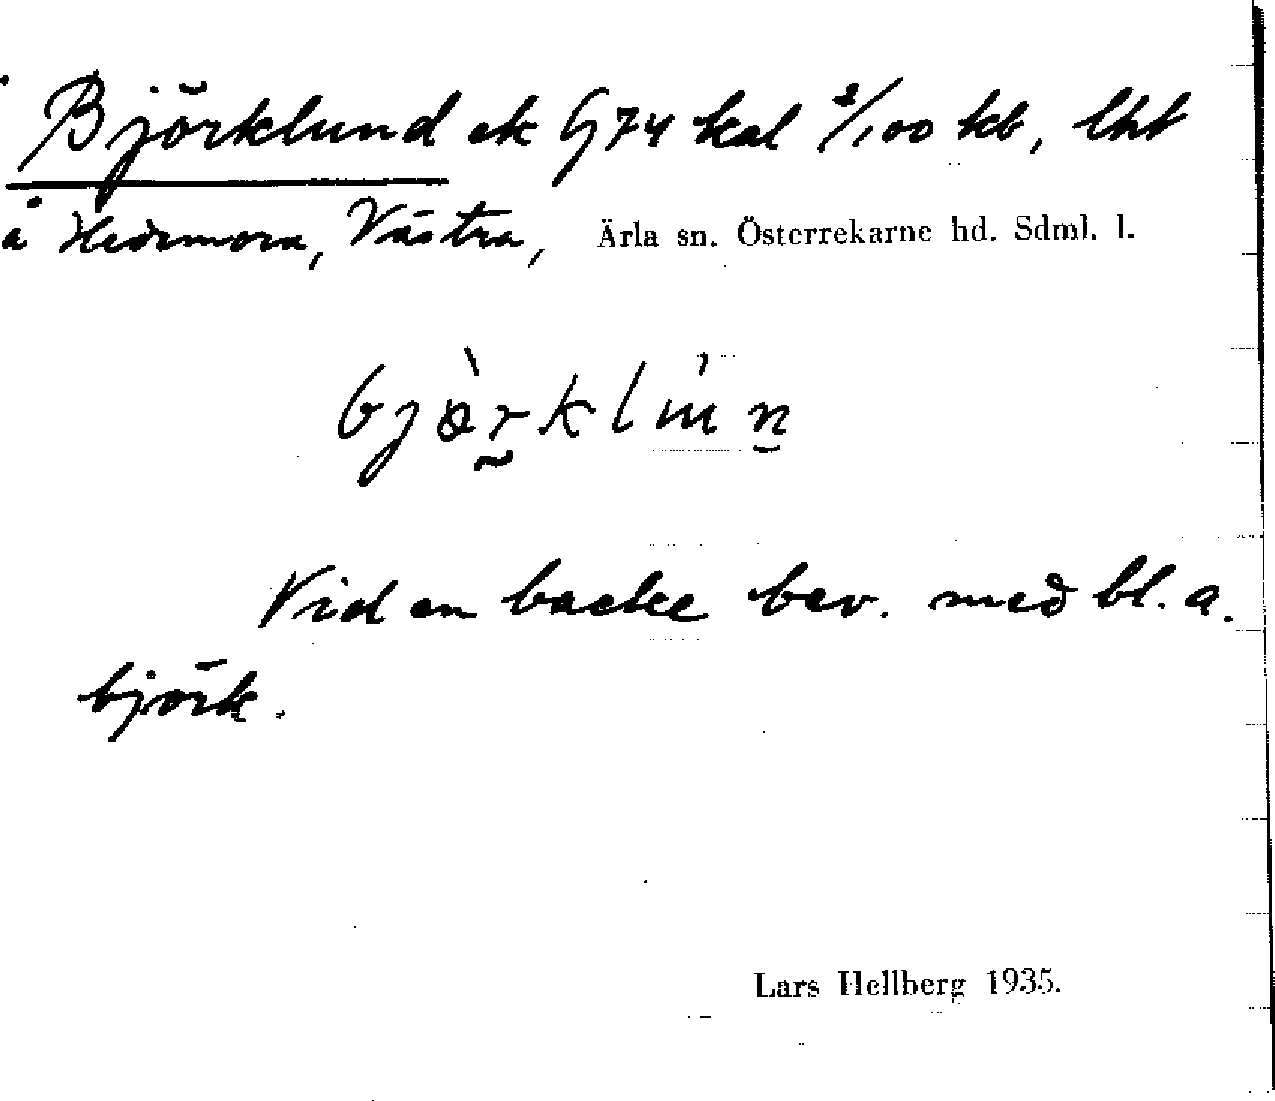 Björklund ek G74 kal 2/100 kb, lht
å Hedemora, Västra, Ärla sn. Österrekarne hd. Sdml. l.
Vid en backe bev. med bl. a.
björk.
Lars Hellberg 1935.